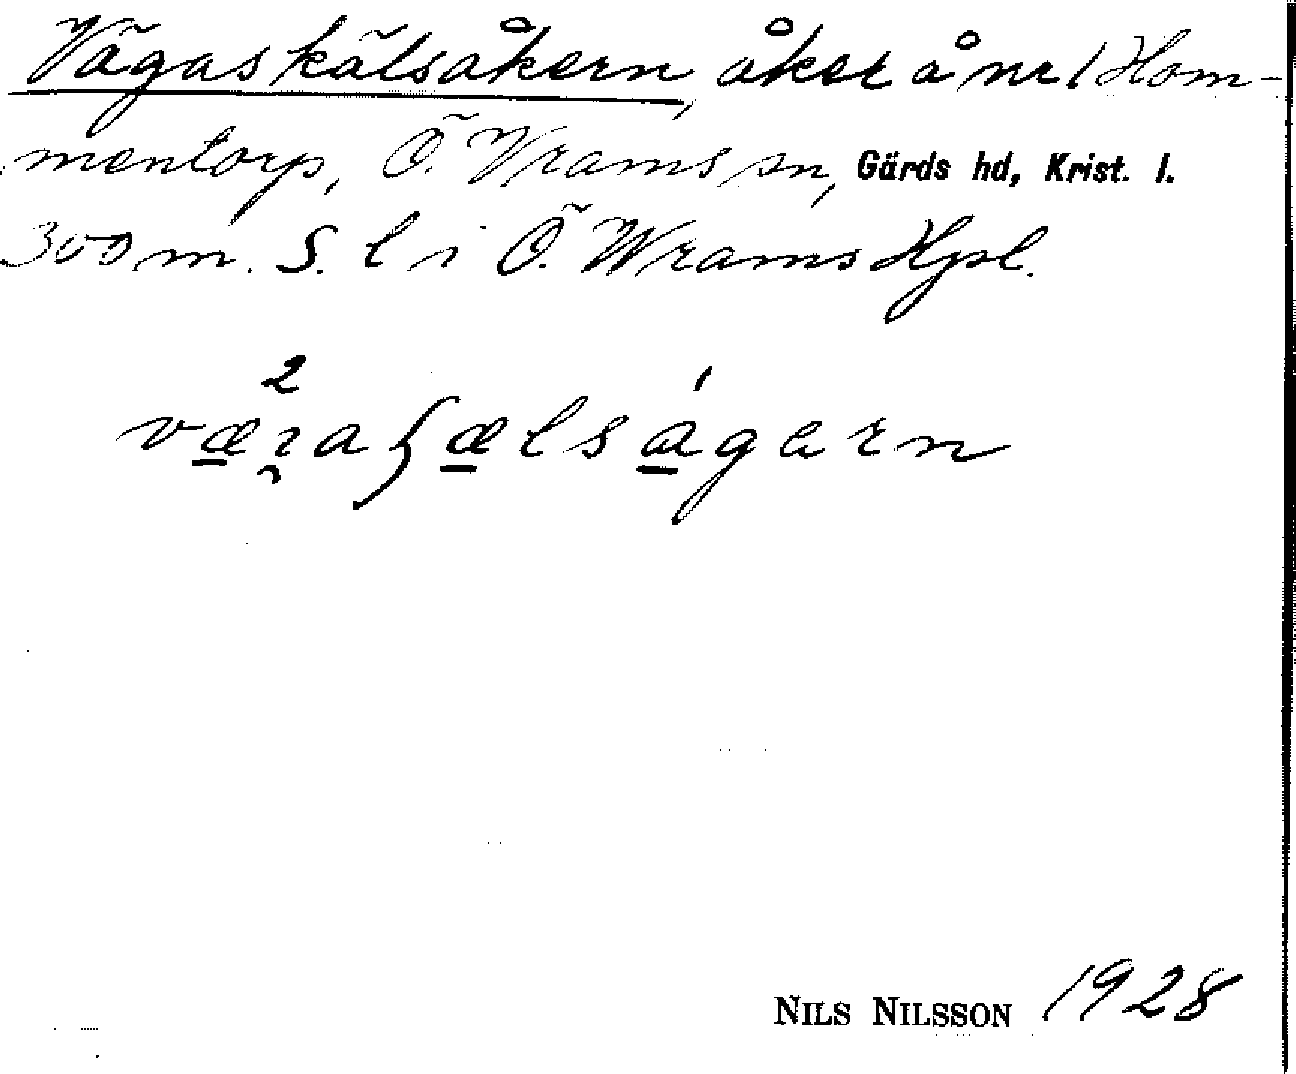 Vägaskälsåkern, åker å nr 1 Hom-
mentorp, Ö. Vrams sn, Gärds hd, Krist. l.
300 m. S. l i Ö. Wrams Hpl.
2 ˈ
væɿaʃælsågern
NILS NILSSON 1928